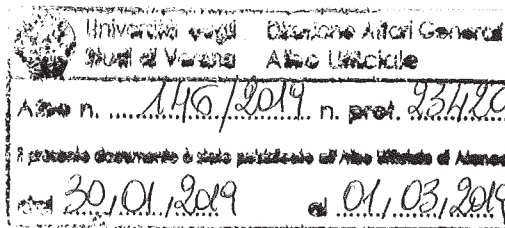 Università degli Direzione Affari General
Studi di Verona Albo Ufficiale
Albo n. 146/2019 n. prot. 23420
Il presente documento è stato pubblicato all'Albo Ufficiale di Ateneo
dal 30/01/2019 al 01/03/2019